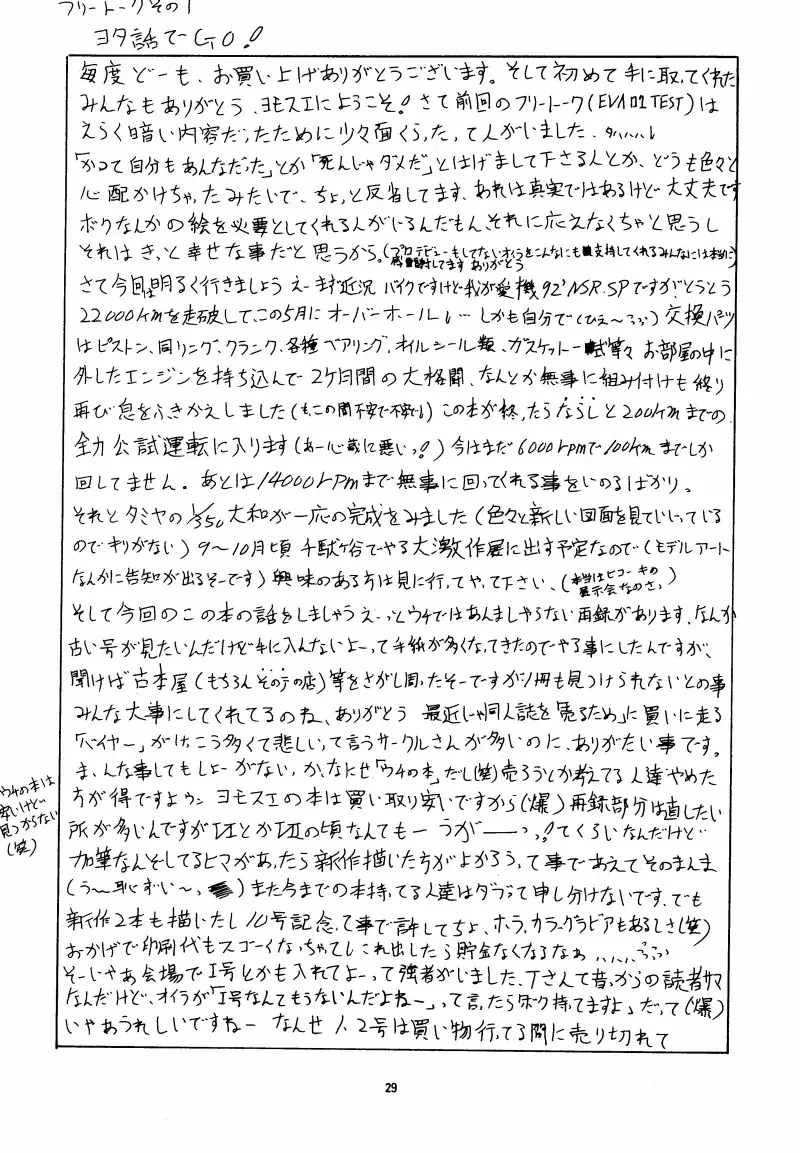 フリートークその1
ヨタ話でGO!
毎度どーも、お買い上げありがとうございます。そして初めて手に取ってくれた
みんなもありがとう、ヨモスエにようこそ!さて前回のフリートーク(EVA 02 TEST)は
えらく暗い内容だったために少々面くらったって人がいました、タハハハ
「かつて自分もあんなだった」とか「死んじゃダメだ」とはげまして下さる人とか、どうも色々と
心配かけちゃったみたいで、ちょっと反省してます、あれは真実ではあるけど大丈夫です
ボクなんかの絵を必要としてくれる人がいるんだもん、それに応えなくちゃと思うし
それはきっと幸せな事だと思うから。(プロデビューもしてないオイラをこんなにも支持してくれるみんなには本当に
感謝してます ありがとう
さて今回は明るく行きましょう えーまず近況 バイクですけど我が愛機92'NSR.SPですがとうとう
22000kmを走破して、この5月にオーバーホールし…しかも自分で(ひぇ〜ふふ)交換パーツ
はピストン、同リング、クランク、各種ベアリング、オイルシール類、ガスケット一式等々 お部屋の中に
外したエンジンを持ち込んで2ヶ月間の大格闘、なんとか無事に組み付けも終り
再び息をふきかえしました(もこの間不安で不安で)この本が終ったらならしと200kmまでの
全力公試運転に入ります(あー心臓に悪いっ!)今はまだ6000rpmで100kmまでしか
回してません。あとは14000rPmまで無事に回ってくれる事をいのるばかり。
それとタミヤの1/350大和が一応の完成をみました(色々と新しい図面を見ていじっている
のでキリがない)9〜10月頃千駄ヶ谷でやる大激作展に出す予定なので(モデルアート
なんかに告知が出るそーです)興味のある方は見に行ってやって下さい、(本当はヒコーキの
展示会なのさっ)
そして今回のこの本の話をしましゃうえーっとウチではあんましやらない再録があります、なんか
古い号が見たいんだけど手に入んないよーって手紙が多くなってきたのでやる事にしたんですが、
聞けば古本屋(もちろんその手の店)等をさがし周ったそーですが1冊も見つけられないとの事
みんな大事にしてくれてるのね、ありがとう 最近じゃ同人誌を「売るため」に買いに走る
「バイヤー」がけっこう多くて悲しいって言うサークルさんが多いのに、ありがたい事です。
ま、んな事してもしょーがないか、なにせ「ウチの本」だし(笑)売ろうとか考えてる人達やめた
方が得ですよゥンヨモスエの本は買い取り安いですから(爆)再録部分は直したい
所が多いんですがIエとかIIの頃なんてもーうがーーーっっ!てくらいなんだけど
加筆なんぞしてるヒマがあったら新作描いたちがよかろうって事であえてそのまんま
(う〜恥ずい〜、)また今までの本持ってる人達はダブって申し分けないです、でも
新作2本も描いたし10号記念って事で許してちょ、ホラ、カラーグラビアもあるしさ(笑)
おかげで印刷代もスゴーくなっちゃてしこれ出したら貯金なくなるなぁ……ふふ
そーいやあ会場でI号とかも入れてよーって強者がいました、Tさんて昔っからの読者サマ
なんだけど、オイラが「I号なんてもうないんだよねー」って言ったら「ボク持てますよ」だって(爆)
いやあうれしいですねー なんせ1、2号は買い物行ってる間に売り切れて
ウチの本は
安いけど
見つからない
(笑)
29